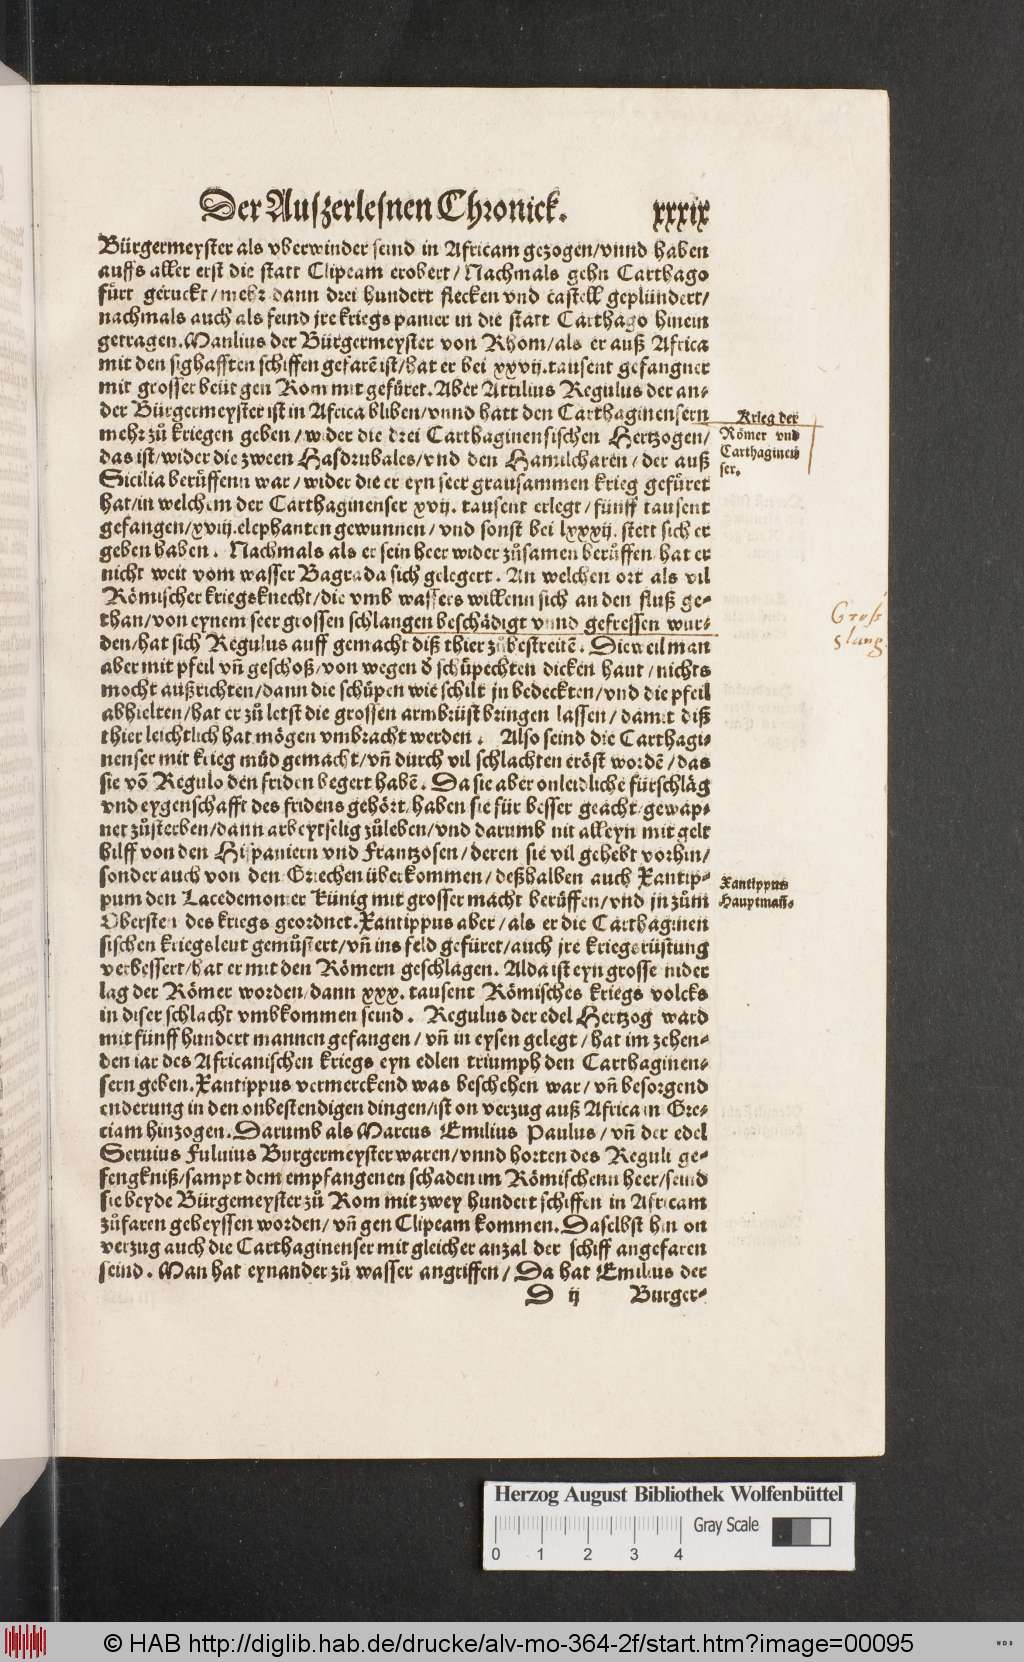 Der Auſzerleſnen Chronick. xxxix
Bürgermeyſter als vberwinder ſeind in Africam gezogen/vnnd haben
auffs aller erſt die ſtatt Clipeam erobert/Nachmals gehn Carthago
fürt geruckt/mehr dann drei hundert flecken vnd caſtell geplündert/
nachmals auch als feind jre kriegs panier in die ſtatt Carthago hinein
getragen. Manlius der Bürgermeyſter von Rhom/als er auß Africa
mit den ſighafften ſchiffen gefarē iſt/hat er bei xxvij. tauſent gefangner
mit groſſer beüt gen Rom mit gefüret. Aber Attilius Regulus der an-
der Bürgermeyſter iſt in Africa bliben/vnnd hatt den Carthaginenſern
mehr zů kriegen geben/wider die drei Carthaginenſiſchen Hertzogen/
das iſt/wider die zween Haſdrubales/vnd den Hamilcharen/der auß
Sicilia berůffenn war/wider die er eyn ſeer grauſammen krieg gefüret
hat/in welchem der Carthaginenſer xvij. tauſent erlegt/fünff tauſent
gefangen/xviij. elephanten gewunnen/vnd ſonſt bei lxxxij. ſtett ſich er
geben haben. Nachmals als er ſein heer wider zůſamen berůffen/hat er
nicht weit vom waſſer Bagrada ſich gelegert. An welchen ort als vil
Römiſcher kriegsknecht/die vmb waſſers willenn ſich an den fluß ge-
than/von eynem ſeer groſſen ſchlangen beſchädigt vnnd gefreſſen wur-
den/hat ſich Regulus auff gemacht diß thier zůbeſtreitē. Dieweil man
aber mit pfeil vñ geſchoß/von wegen d̓ ſchüpechten dicken haut/nichts
mocht außrichten/dann die ſchüpen wie ſchilt jn bedeckten/vnd die pfeil
abhielten/hat er zů letſt die groſſen armbrüſt bringen laſſen/damit diß
thier leichtlich hat mögen vmbracht werden. Alſo ſeind die Carthagi-
nenſer mit krieg müd gemacht/vñ durch vil ſchlachten eröſt wordē/das
ſie vō Regulo den friden begert habē. Da ſie aber onleidliche fürſchläg
vnd eygenſchafft des fridens gehört/haben ſie für beſſer geacht/gewap-
net zůſterben/dann arbeytſelig zůleben/vnd darumb nit alleyn mit gelt
hilff von den Hiſpaniern vnd Frantzoſen/deren ſie vil gehebt vorhin/
ſonder auch von den Griechen überkommen/deßhalben auch Xantip-
pum den Lacedemonier Künig mit groſſer macht berůffen/vnd jn zům
Oberſten des kriegs geordnet. Xantippus aber/als er die Carthaginen
ſiſchen kriegsleut gemůſtert/vñ ins feld gefüret/auch jre kriegsrüſtung
verbeſſert/hat er mit den Römern geſchlagen. Alda iſt eyn groſſe nider
lag der Römer worden/dann xxx. tauſent Römiſches kriegs volcks
in diſer ſchlacht vmbkommen ſeind. Regulus der edel Hertzog ward
mit fünff hundert mannen gefangen/vñ in eyſen gelegt/hat im zehen-
den iar des Africaniſchen kriegs eyn edlen triumph den Carthaginen-
ſern geben. Xantippus vermerckend was beſchehen war/vñ beſorgend
enderung in den onbeſtendigen dingen/iſt on verzug auß Africa in Gre-
ciam hinzogen. Darumb als Marcus Emilius Paulus/vñ der edel
Seruius Fuluius Burgermeyſter waren/vnnd horten des Reguli ge-
fengkniß/ſampt dem empfangenen ſchaden im Römiſchenn heer/ſeind
ſie beyde Bürgemeyſter zů Rom mit zwey hundert ſchiffen in Africam
zůfaren geheyſſen worden/vñ gen Clipeam kommen. Daſelbſt hin on
verzug auch die Carthaginenſer mit gleicher anzal der ſchiff angefaren
ſeind. Man hat eynander zů waſſer angriffen/Da hat Emilius der
D ij Burger-
Krieg der
Römer vnd
Carthaginen
ſer.
Groſ
slang
Xantippus
Hauptmañ.
Herzog August Bibliothek Wolfenbüttel
Gray Scale
0 1 2 3 4
© HAB http://diglib.hab.de/drucke/alv-mo-364-2f/start.htm?image=00095